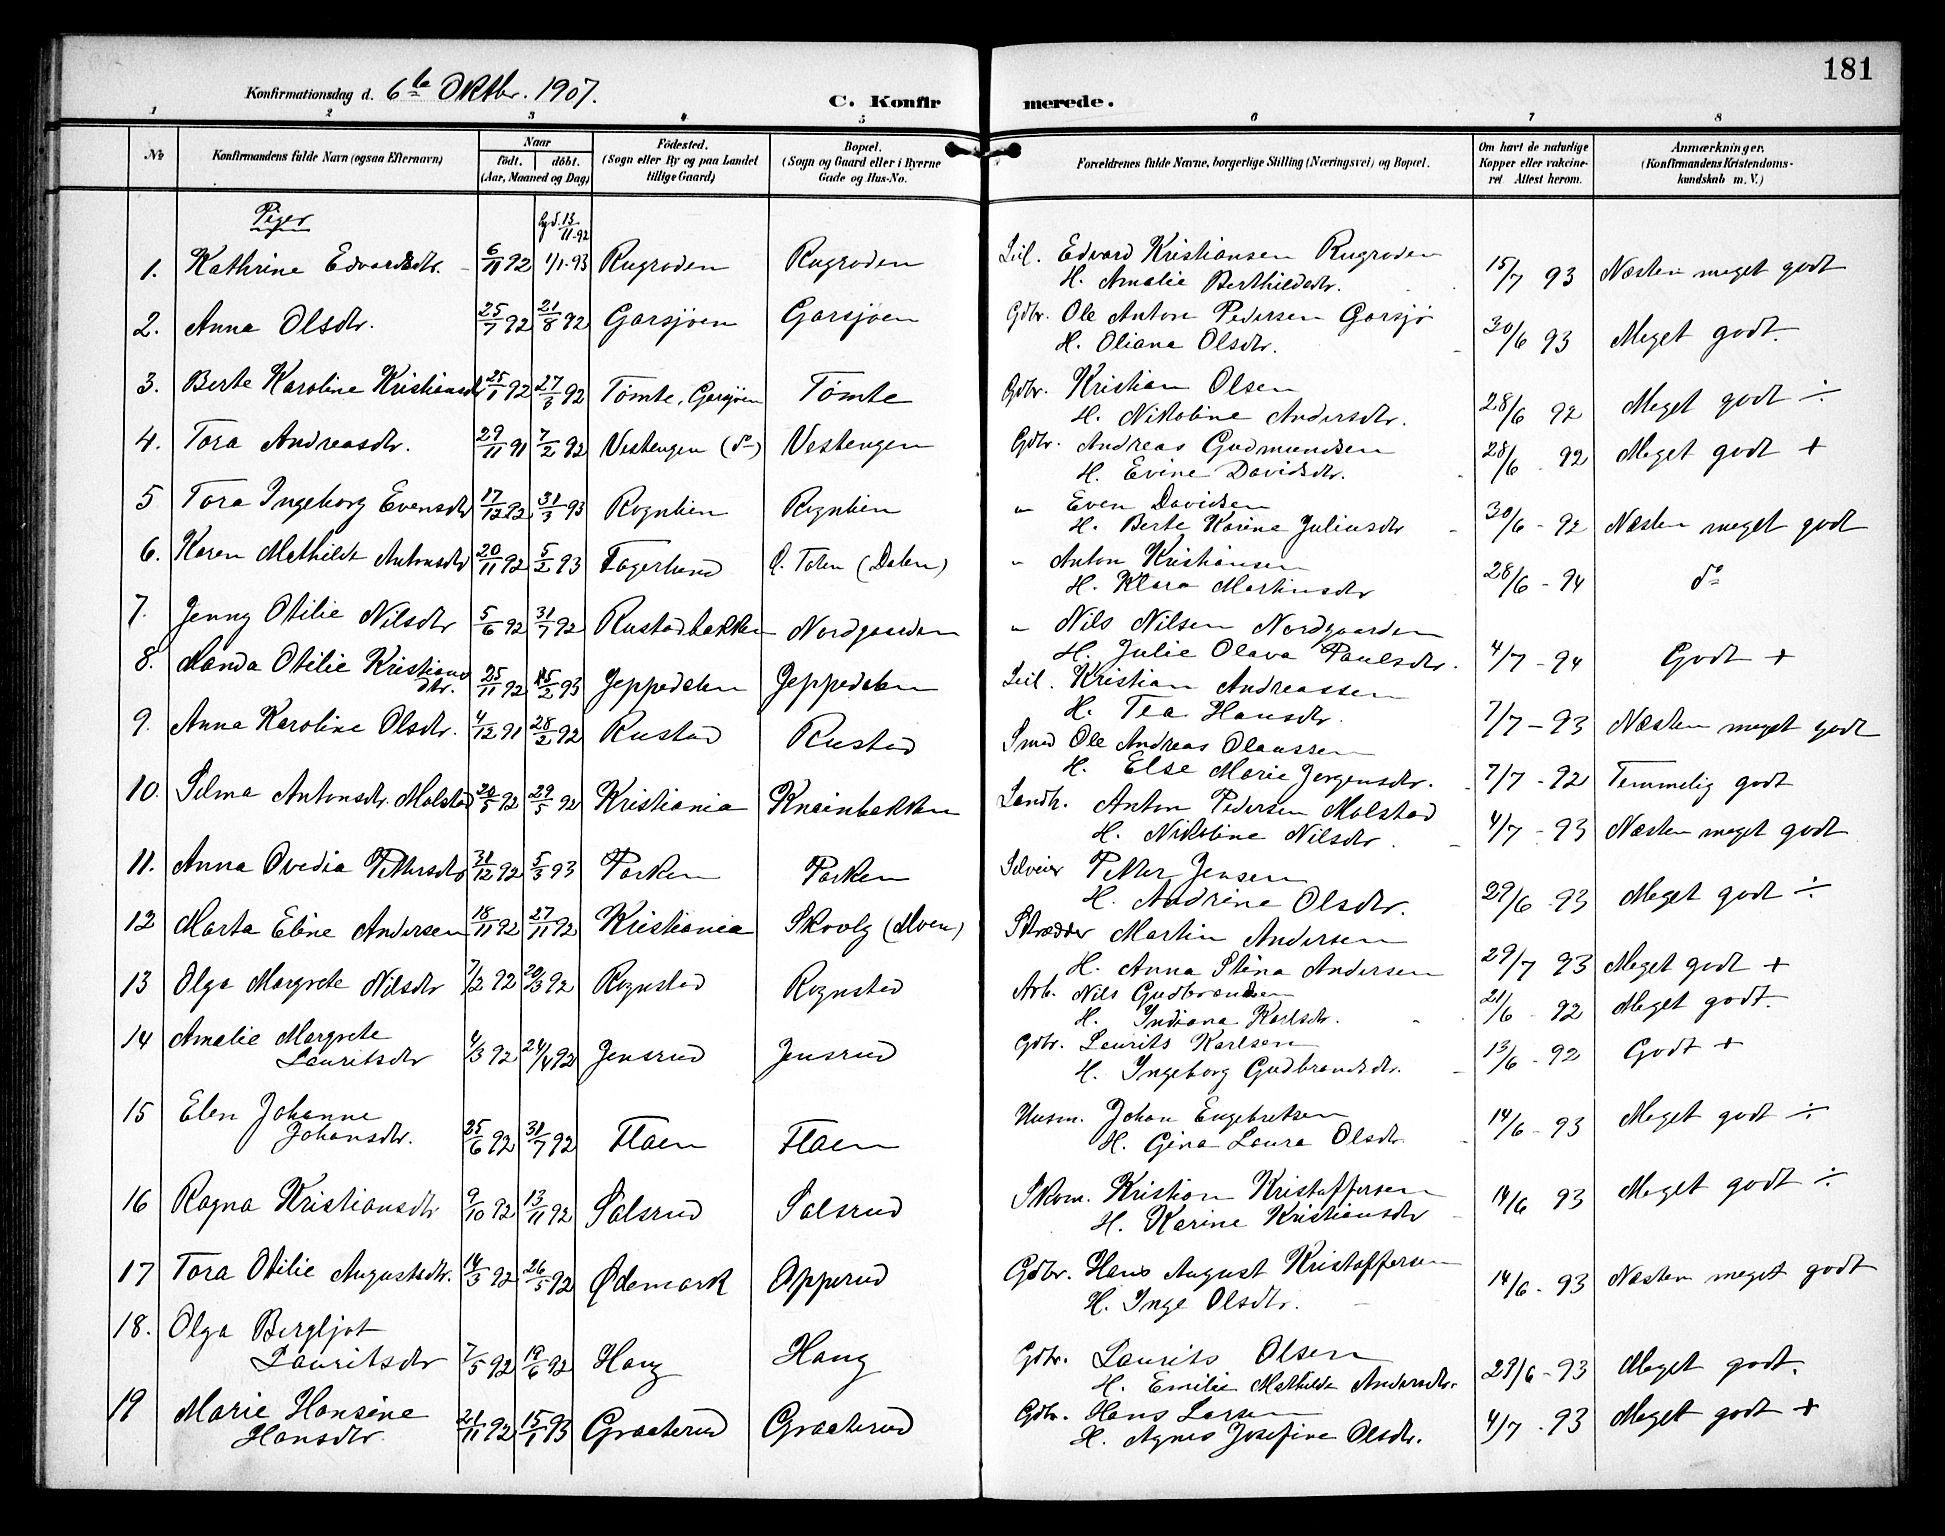 181
Konfirmationsdag d. 6te Oktbr. 1907.
C. Konfirmerede.
1 2 3 4 5 6 7 8
No
Konfirmandens fulde Navn (ogsaa Efternavn)
Naar
født. døbt.
(Aar, Maaned og Dag)
Fødested.
(Sogn eller By og paa Landet
tillige Gaard)
Bopæl.
(Sogn og Gaard eller i Byerne
Gade og Hus-No.
Forældrenes fulde Navne, borgerlige Stilling (Næringsvei) og Bopæl.
Om havt de naturlige
Kopper eller vakcine-
ret Attest herom.
Anmærkninger.
(Konfirmandens Kristendoms-
kundskab m. V.)
Piger
13/11-92
1. Kathrine Edvardsdtr. 6/11 92 1/1-93 Rugroden Rugroden Edvard Kristiansen Rugroden 15/7 93 Næsten meget godt
H. Amalie Berthildsdtr.
2. Anna Olsdtr. 25/7 92 21/8 92 Garsjøen Garsjøen Gdbr. Ole Anton Pedersen Garsjø 30/6 93 Meget godt.
H. Oliana Olsdtr.
3. Berte Karoline Kristiansdtr 25/1 92 27/3 92 Tømte, Garsjøen Tømte Gdbr. Kristian Olsen 28/6 92 Meget godt ÷
H. Nikoline Andersdtr.
4. Tora Andreasdtr. 29/11 91 7/2 92 Vestengen (do) Vestengen Gdbr. Andreas Gudmundsen 28/6 - 92 Meget godt +
H. Evine Davidsdtr.
5 Tora Ingeborg Evensdtr 17/12 92 31/3 93 Rognlien Rognlien " Even Davidsen 30/6 - 92 Næsten meget godt
H. Berte Karine Juliusdtr
6. Karen Mathilde Antonsdtr 20/11 92 5/2 93 Fagerlund Ø. Toten (Dalen) " Anton Kristiansen 28/6 - 94 do
H. Klara Martinsdtr
7. Jenny Otilie Nilsdtr 5/6 92 31/7 92 Rustadbakken Nordgaarden " Nils Nilsen Nordgaarden 4/7 - 94 Godt +
H. Julie Olava Paulsdtr.
8. Wanda Otilie Kristians
dtr. 25/11 92 15/2 93 Jeppedalen Jeppedalen Kristian Andreassen 7/7 - 93 Næsten meget godt
H. Tea Hansdtr.
9. Anna Karoline Olsdtr. 4/12 91 28/2 92 Rustad Rustad Smed Ole Andreas Olaussen 7/7 - 92 Temmelig godt
H. Else Marie Jørgensdtr.
10. Selma Antonsdtr. Molstad 20/5 92 29/5 92 Kristiania Knæinbakken Landh. Anton Pedersen Molstad 4/7 - 93 Næsten meget godt
H. Nikoline Nilsdtr.
11. Anna Ovedia Pettersdtr 31/12 92 5/3 93 Parken Parken Selveier Petter Jensen 29/6 - 93 Meget godt ÷
H. Andrine Olsdtr.
12 Marta Eline Andersen 18/11 92 27/11 92 Kristiania Skovly (Moen) Skrædder Martin Andersen 29/7 93 Meget godt +
H. Anna Stina Andersen
13 Olga Margrete Nilsdtr 7/2 92 20/3 92 Rognstad Rognstad Arb. Nils Gudbrandsen 21/6 - 92 Meget godt.
H. Indiana Karlsdtr.
14 Amalie Margrete
Lauritsdtr 4/3 92 24/4 92 Jensrud Jensrud Gdbr. Laurits Karlsen 13/6 - 92 Godt +
H. Ingeborg Gudbrandsdtr.
15 Elen Johanne
Johansdtr. 25/6 92 31/7 92 Flaen Flaen Husm. Johan Engebretsen 14/6 - 93 Meget godt ÷
H. Gina Laura Olsdtr.
16 Ragna Kristiansdtr 9/10 92 13/11 92 Salsrud Salsrud Skom. Kristian Kristoffersen 14/6 93 Meget godt ÷
H. Karine Kristiansdtr
17 Tora Otilie Augustsdtr. 14/3 92 26/5 92 Ødemark Opperud Gdbr. Hans August Kristoffersen 14/6 - 93 Næsten meget godt
H. Inge Olsdtr.
18. Olga Bergljot
Lauritsdtr 7/5 92 19/6 92 Haug Haug Gdbr. Laurits Olsen 29/6 - 93 Meget godt.
H. Emilie Mathilde Andersdtr.
19 Marie Hansine
Hansdtr. 21/11 92 15/1 93 Graaterud Graaterud Gdbr. Hans Larsen 4/7 - 93 Meget godt +
H. Agnes Josefine Olsdtr.